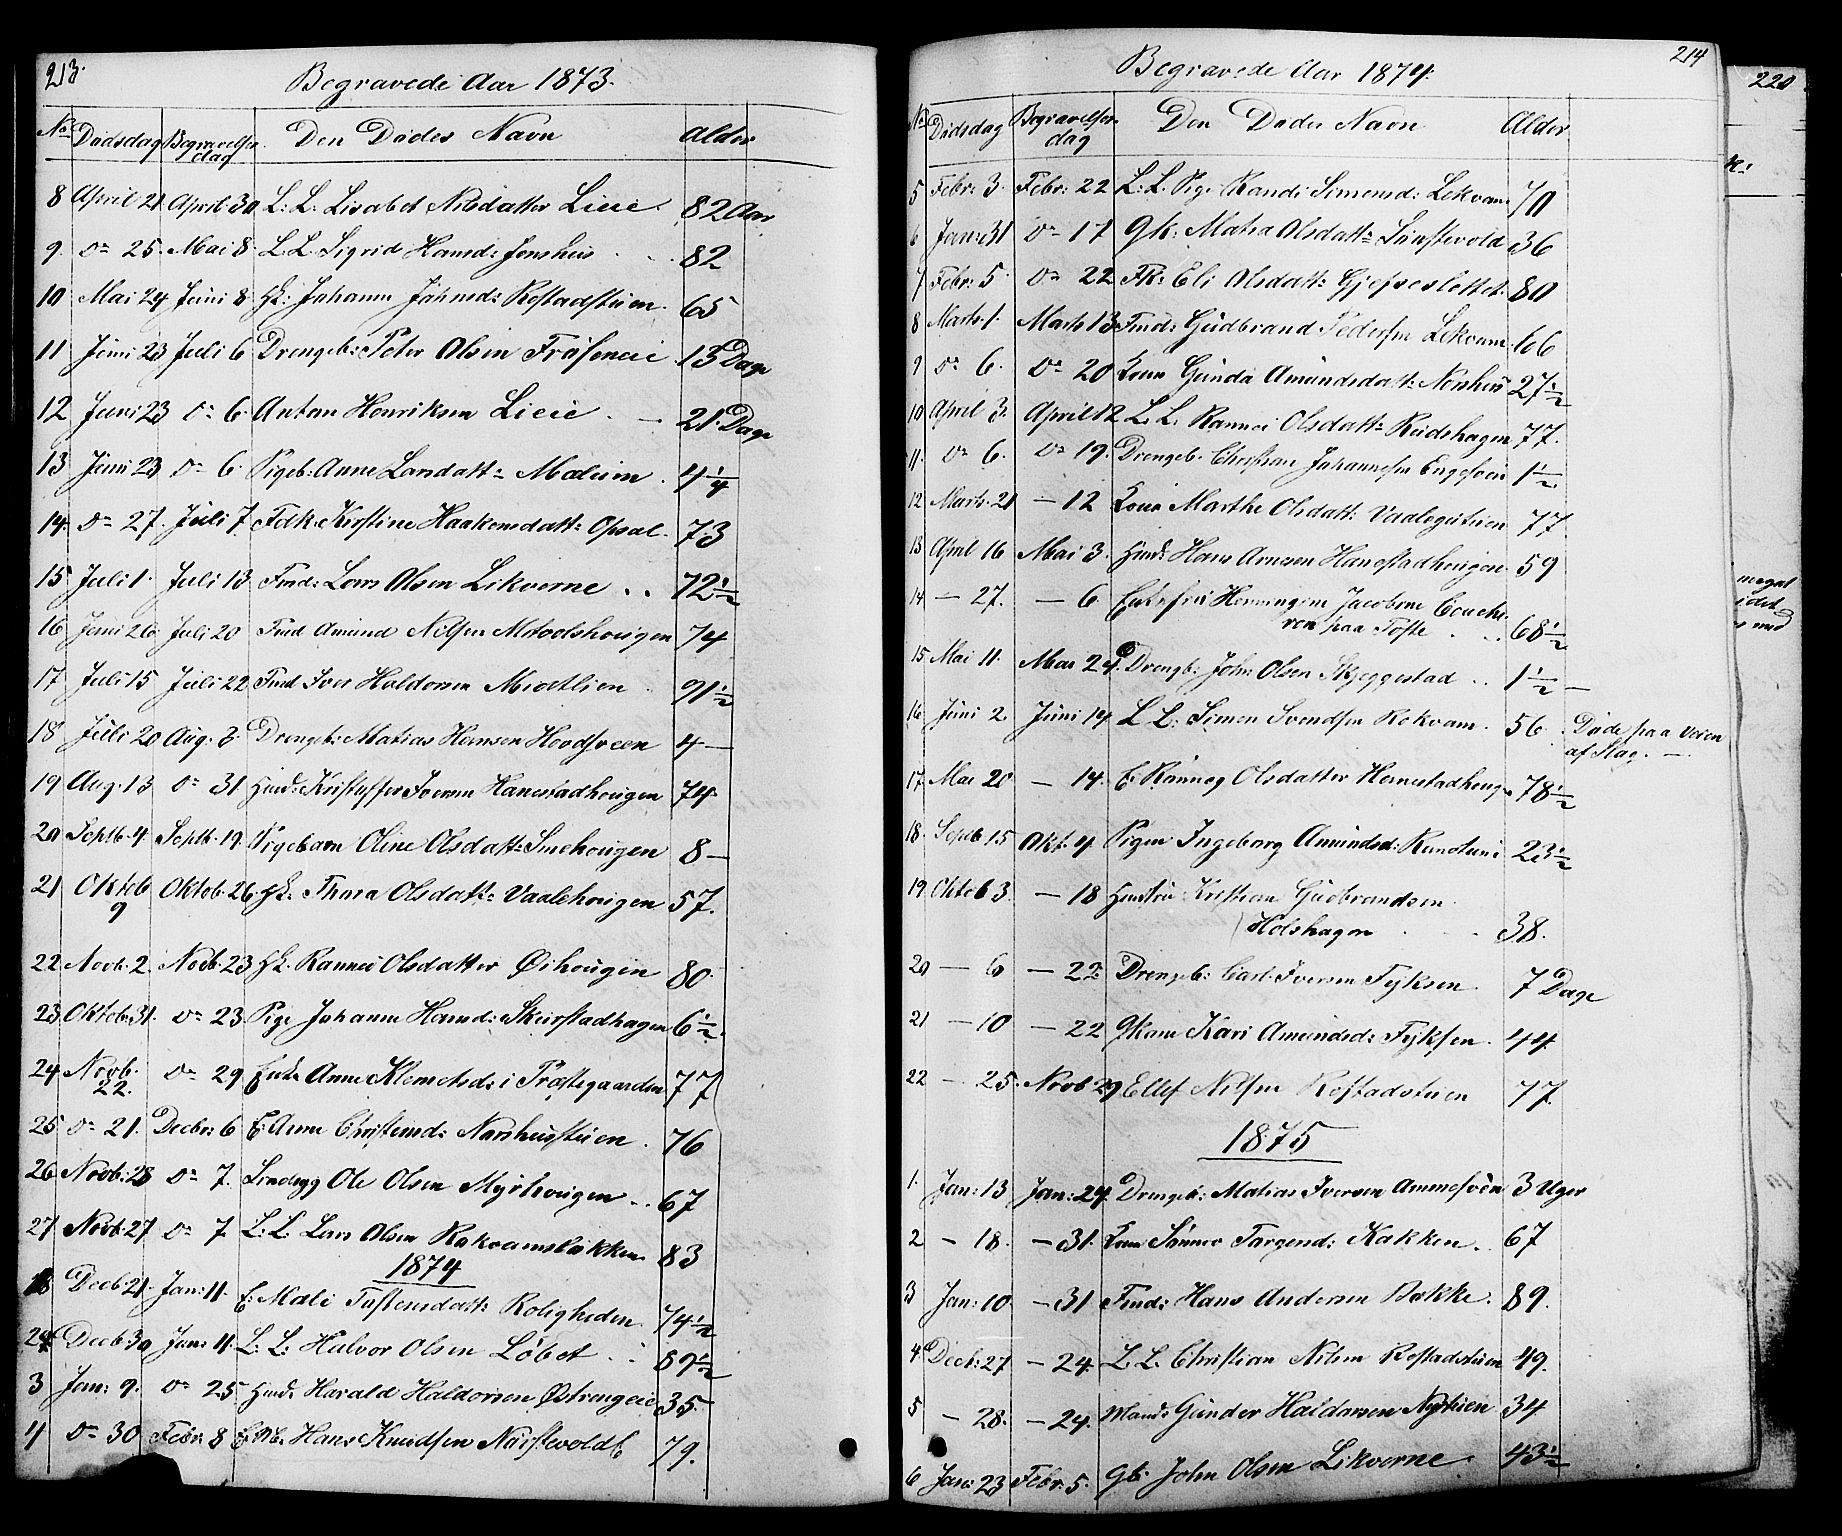 213.
Begravede Aar 1873.
No Dødsdag Begravelses dag Den Dødes Navn Alder
8 April 21 April 30 L: L. Lisabet Nilsdatter Lieie 82 Aar
9. do 25. Mai 8. L. L. Sigrid Hansd: Jonshus 82
10 Mai 24 Juni 8. Johanne Rostadstuen. 65
11 Juni 23 Juli 6 Drengeb: Peter Olsen 13 Dage
12 Juni 23 do 6. Anton Henriksen Lieie. 21 Dage
13 Juni 23 do 6. Pigeb: Anne Larsdatt: Mælum. 4 1/4
14. do 27. Juli 7. Fdk. Kirstine Haakensdatt: Opsal. 73
15 Juli 1. Juli 13 Lars Olsen Likverne 72 1/2
16 Juni 26 Juli 20 Amund Nilsen 74
17 Juli 15 Juli 22 Iver Haldorsen Midtlien 91 1/2
18 Juli 20 Aug. 3. Drengeb: Matias Hansen Hoodsveen 4 —
19 Aug. 13 do 31 Husd: Kristoffer Iversen Hanestadhougen 74
20 Septb. 4. Septb. 19. Pigebarn Oline Olsdatt: Smehougen 8 —
21 Oktob 9 Oktob. 26 Thora Olsdatt: Vaalehougen 57.
22 Novb. 2. Novb. 23 Rannei Olsdatter Øihougen 80.
23 Oktob. 31. do 23 Pige Johanne Hansd: Skurstadhagen 6 1/2
24 Novb. 22. do 29 Enke Anne Klemetsd: i Præstegaarden 77
25 do 21. Decbr: 6 E. Anne Christensd: Narshusstuen. 76
26 Novb: 28 do 7. Ole Olsen Myrhougen 67
27 Novb. 27 do 7 L. L. Lars Olsen Rakvamsløkken 83
1874
Decb. 21. Jan: 11. E: Mali Tostensdatt: Roligheden. 74 1/2
2 Decb: 30 Jan: 11. L: L: Halvor Olsen Løbet 59 1/2
3 Jan: 9. do 25 Husd: Harald Haldorsen Østrengeie 35.
4 do 30 Febr: 8 Hans Knudsen 79.
214
Begravede Aar 1874.
No Dødsdag Begravelses dag Den Dødes Navn Alder
5 Febr: 3. Febr: 22 L: L. Pige Randi Simensd: Lekvam 70
6 Jan: 31 do 17 Gk: Matea Olsdatt: 36
7 Febr: 5. do 22 Fk: Eli Olsdatt: 80
8 Marts 1. Marts 13 Gudbrand Pedersen Lekvam. 66
9 do 6. do 20 Kone Gunda Amundsdatt: 27 1/2
10 April 3. April 12 L. L. Rannei Olsdatt: Rudshagen 77.
11. do 6. do 19. Drengeb. Christian Johannesen 1 1/2
12 Marts. 21 — 12 Kone Marthe Olsdatt: 77
13 April 16 Mai 3. Husd: Hans Arnesen Hanestadhougen. 59
14 — 27. — 6. Enkefru Jacobine Couche-
ron paa Tofte 68 1/2
15 Mai 11. Mai 24 Drengb: John Olsen Skjeggestad 1 1/2 —
16 Juni 2. Juni 14 L L: Simen Svendsen Rokvam. 56 Døde paa Veien
af Slag. —
17 Mai 20 — 14. E Rønnog Olsdatter 78 1/2
18. Septb 15 Okt. 4 Pigen Ingeborg Amundsd: 23 1/2
19. Oktob 3. — 18 Kristian Gudbrandsen
Holshagen 38.
20 — 6 — 22 Drengeb: Carl Iversen Fyksen. 7 Dage
21 — 10 — 22 Gkone Kari Amundsd: Fyksen. 44
22 — 25. Novb 29 Ellef Nilsen Rostadstuen 77.
1875
1. Jan: 13 Jan: 24. Drengeb: Matias Iversen 3 Uger
2 — 18. — 31. Kone Kakken. 67
3 Jan: 10. — 31. Hans Andersen Bakke. 89.
4 Decb: 27 — 24. L. L. Christian Nilsen Rostadstuen 49.
5 — 28. — 24. Gunder Haldorsen 34
6 Jan: 23 Febr: 5. John Olsen Likverne. 43 1/2
220